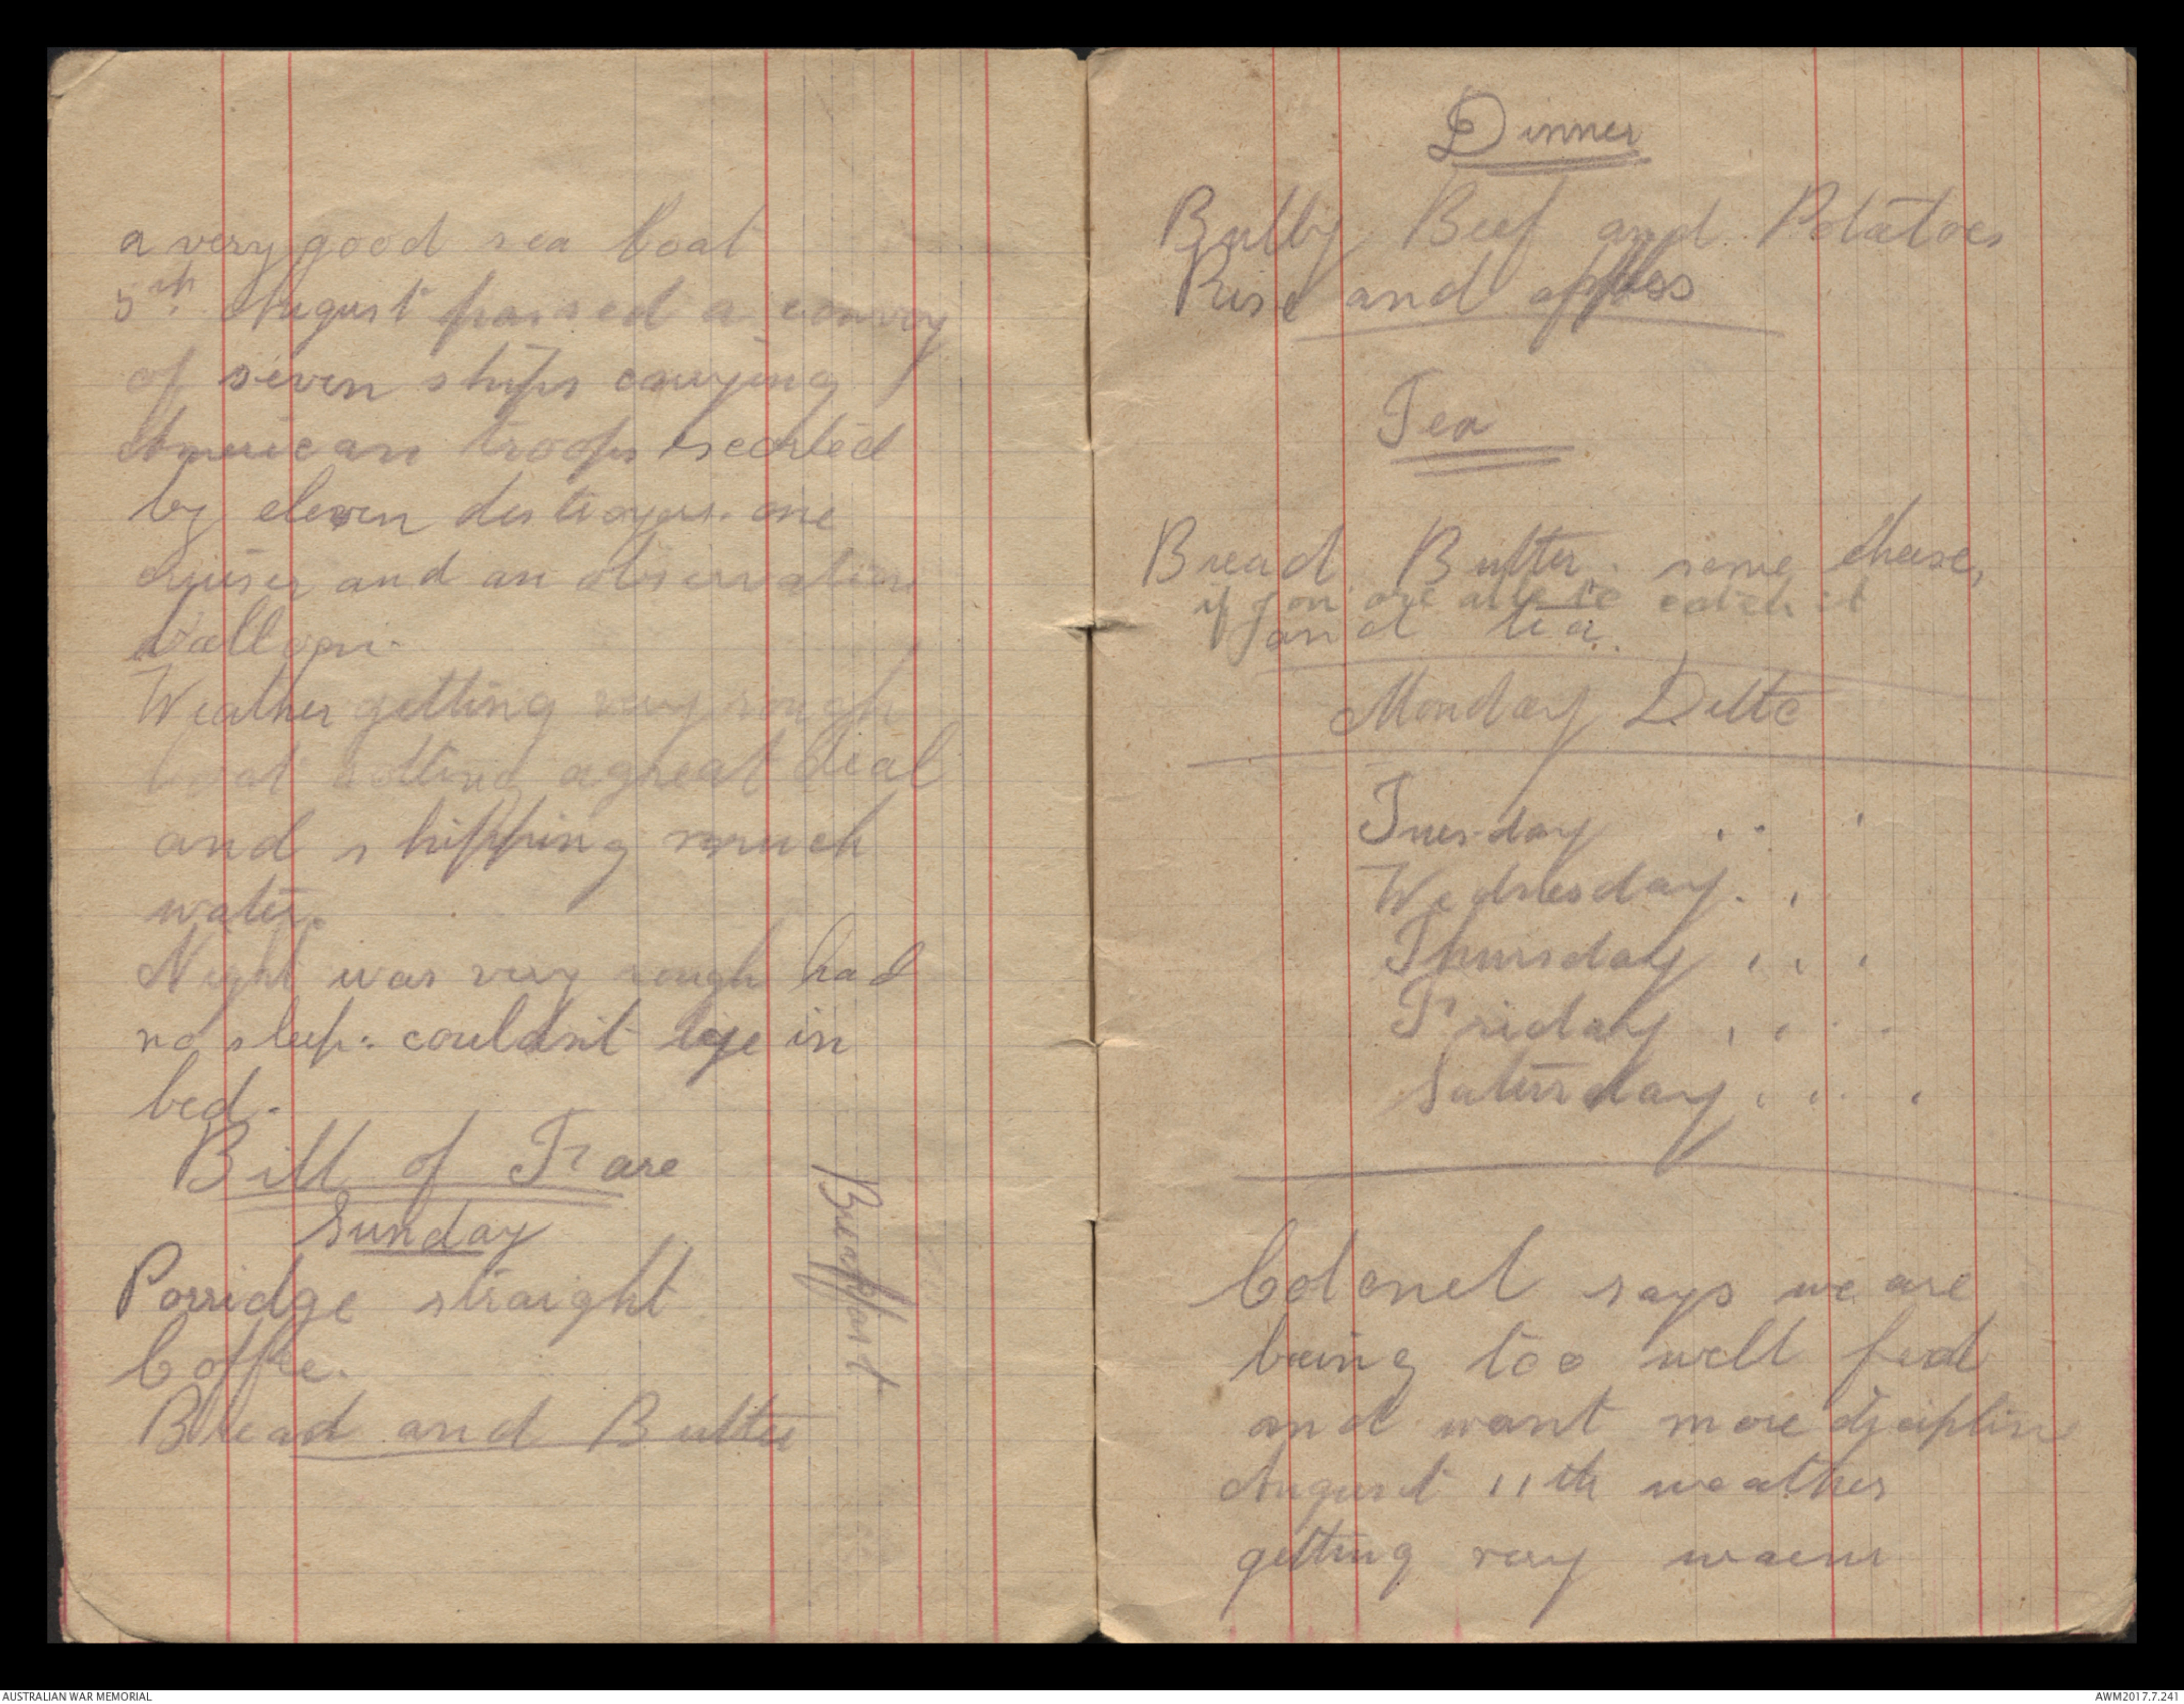 a very good sea boat
5th. August passed a convoy
of seven ships carrying
American troops escorted
by eleven destroyers. one
cruiser and an observation
balloon.
Weather getting very rough
boat a great deal
and shipping much
water.
Night was very rough had
no sleep. couldn't lye in
bed.
Bill of Fare
Sunday
Breaffast
Porridge straight
Coffee.
Bread and Butter
Dinner
Bully Beef and Potatoes
Rise and apples
Tea
Bread Butter. some cheese,
if you are able to catch it
and tea.
Monday Ditto
Tuesday . . .
Wednesday. .
Thursday . . .
Friday . . . .
Saturday . . . .
Colonel says we are
being too well fed
and want more
August 11th weather
getting very warm
AUSTRALIAN WAR MEMORIAL
AWM2017.7.241